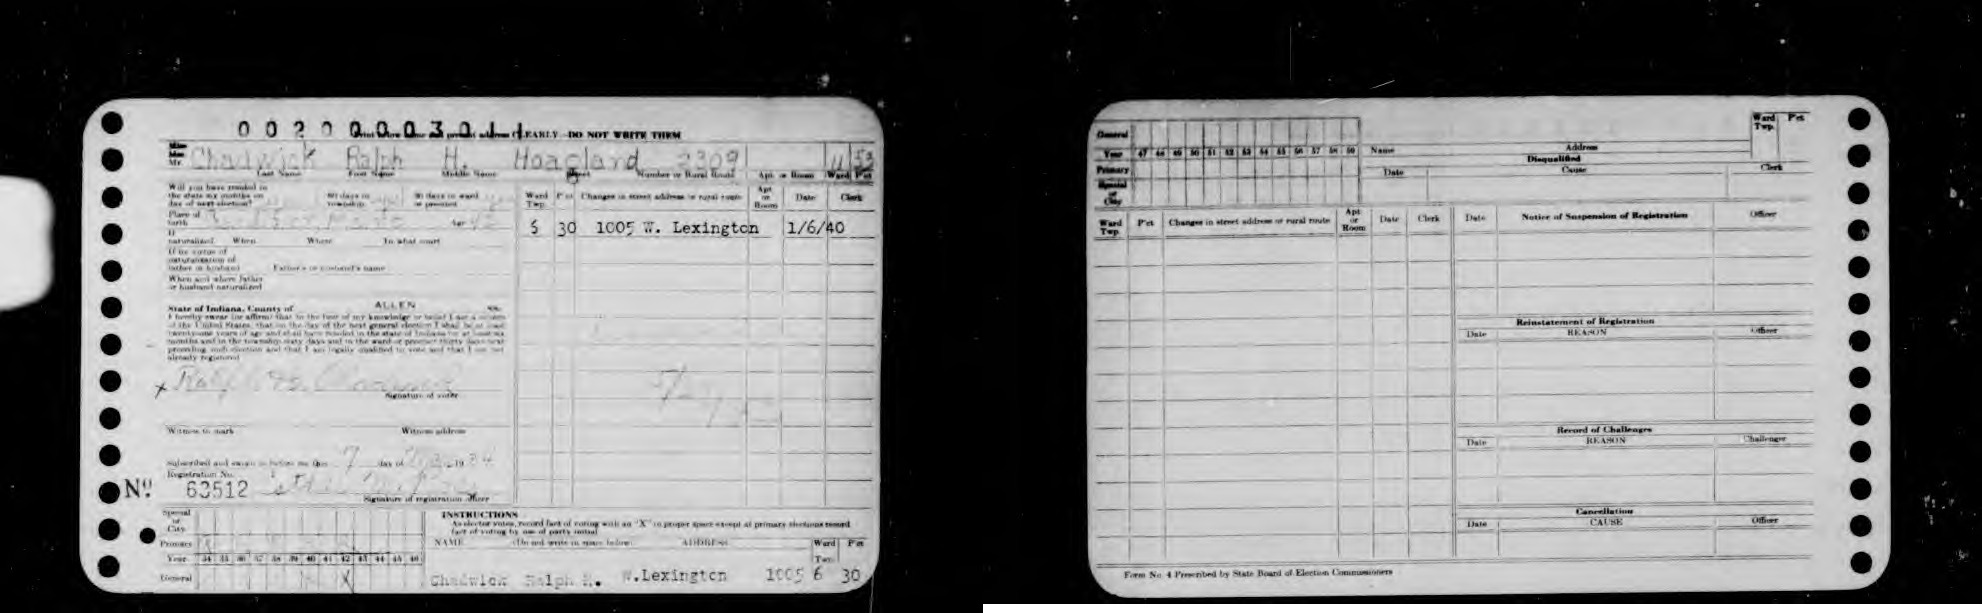 0 0 2 0 0 0 0 3 0 1 1
CLEARLY - DO NOT WRITE THEM
Mr. Chadwick Ralph H. Hoagland 2309
Last Name First Name Middle Name Street Number or Rural Route Apt. or Room Ward P'ct
Will you have resided in
the state six months on
day of next election? 60 days in township 30 days in ward or precinct
Place of birth Age
If naturalized When Where To what court
If by virtue of
naturalization of
father or husband Father's or husband's name
When and where father
or husband naturalized
State of Indiana, County of ALLEN ss:
I hereby swear (or affirm) that to the best of my knowledge or belief I am a citizen
of the United States, that on the day of the next general election I shall be at least
twenty-one years of age and shall have resided in the state of Indiana for at least six
months and in the township sixty days and in the ward or precinct thirty days next
preceding such election and that I am legally qualified to vote and that I am not
already registered
x Ralph
Signature of voter
Witness to mark Witness address
Subscribed and sworn to before me this 7 day of 19 34
Registration No.
No. 63512
Signature of registration officer
Ward Twp. P'ct Changes in street address or rural route Apt or Room Date Clerk
30 1005 W. Lexington 1/6/40
Special or City
Primary
Year 34 35 36 37 38 39 40 41 42 43 44 45 46
General X
INSTRUCTIONS
As elector votes, record fact of voting with an "X" in proper space except at primary elections record
fact of voting by use of party initial
NAME (Do not write in space below) ADDRESS Ward Twp. P'ct
Chadwick Ralph H. W.Lexington 1005 6 30
General
Year 47 48 49 50 51 52 53 54 55 56 57 58 59
Primary
Special or City
Name Address Ward Twp. P'ct
Disqualified
Date Cause Clerk
Ward Twp. P'ct Changes in street address or rural route Apt or Room Date Clerk
Date Notice of Suspension of Registration Officer
Reinstatement of Registration
Date REASON Officer
Record of Challenges
Date REASON Challenger
Cancellation
Date CAUSE Officer
Form No. 4 Prescribed by State Board of Election Commissioners